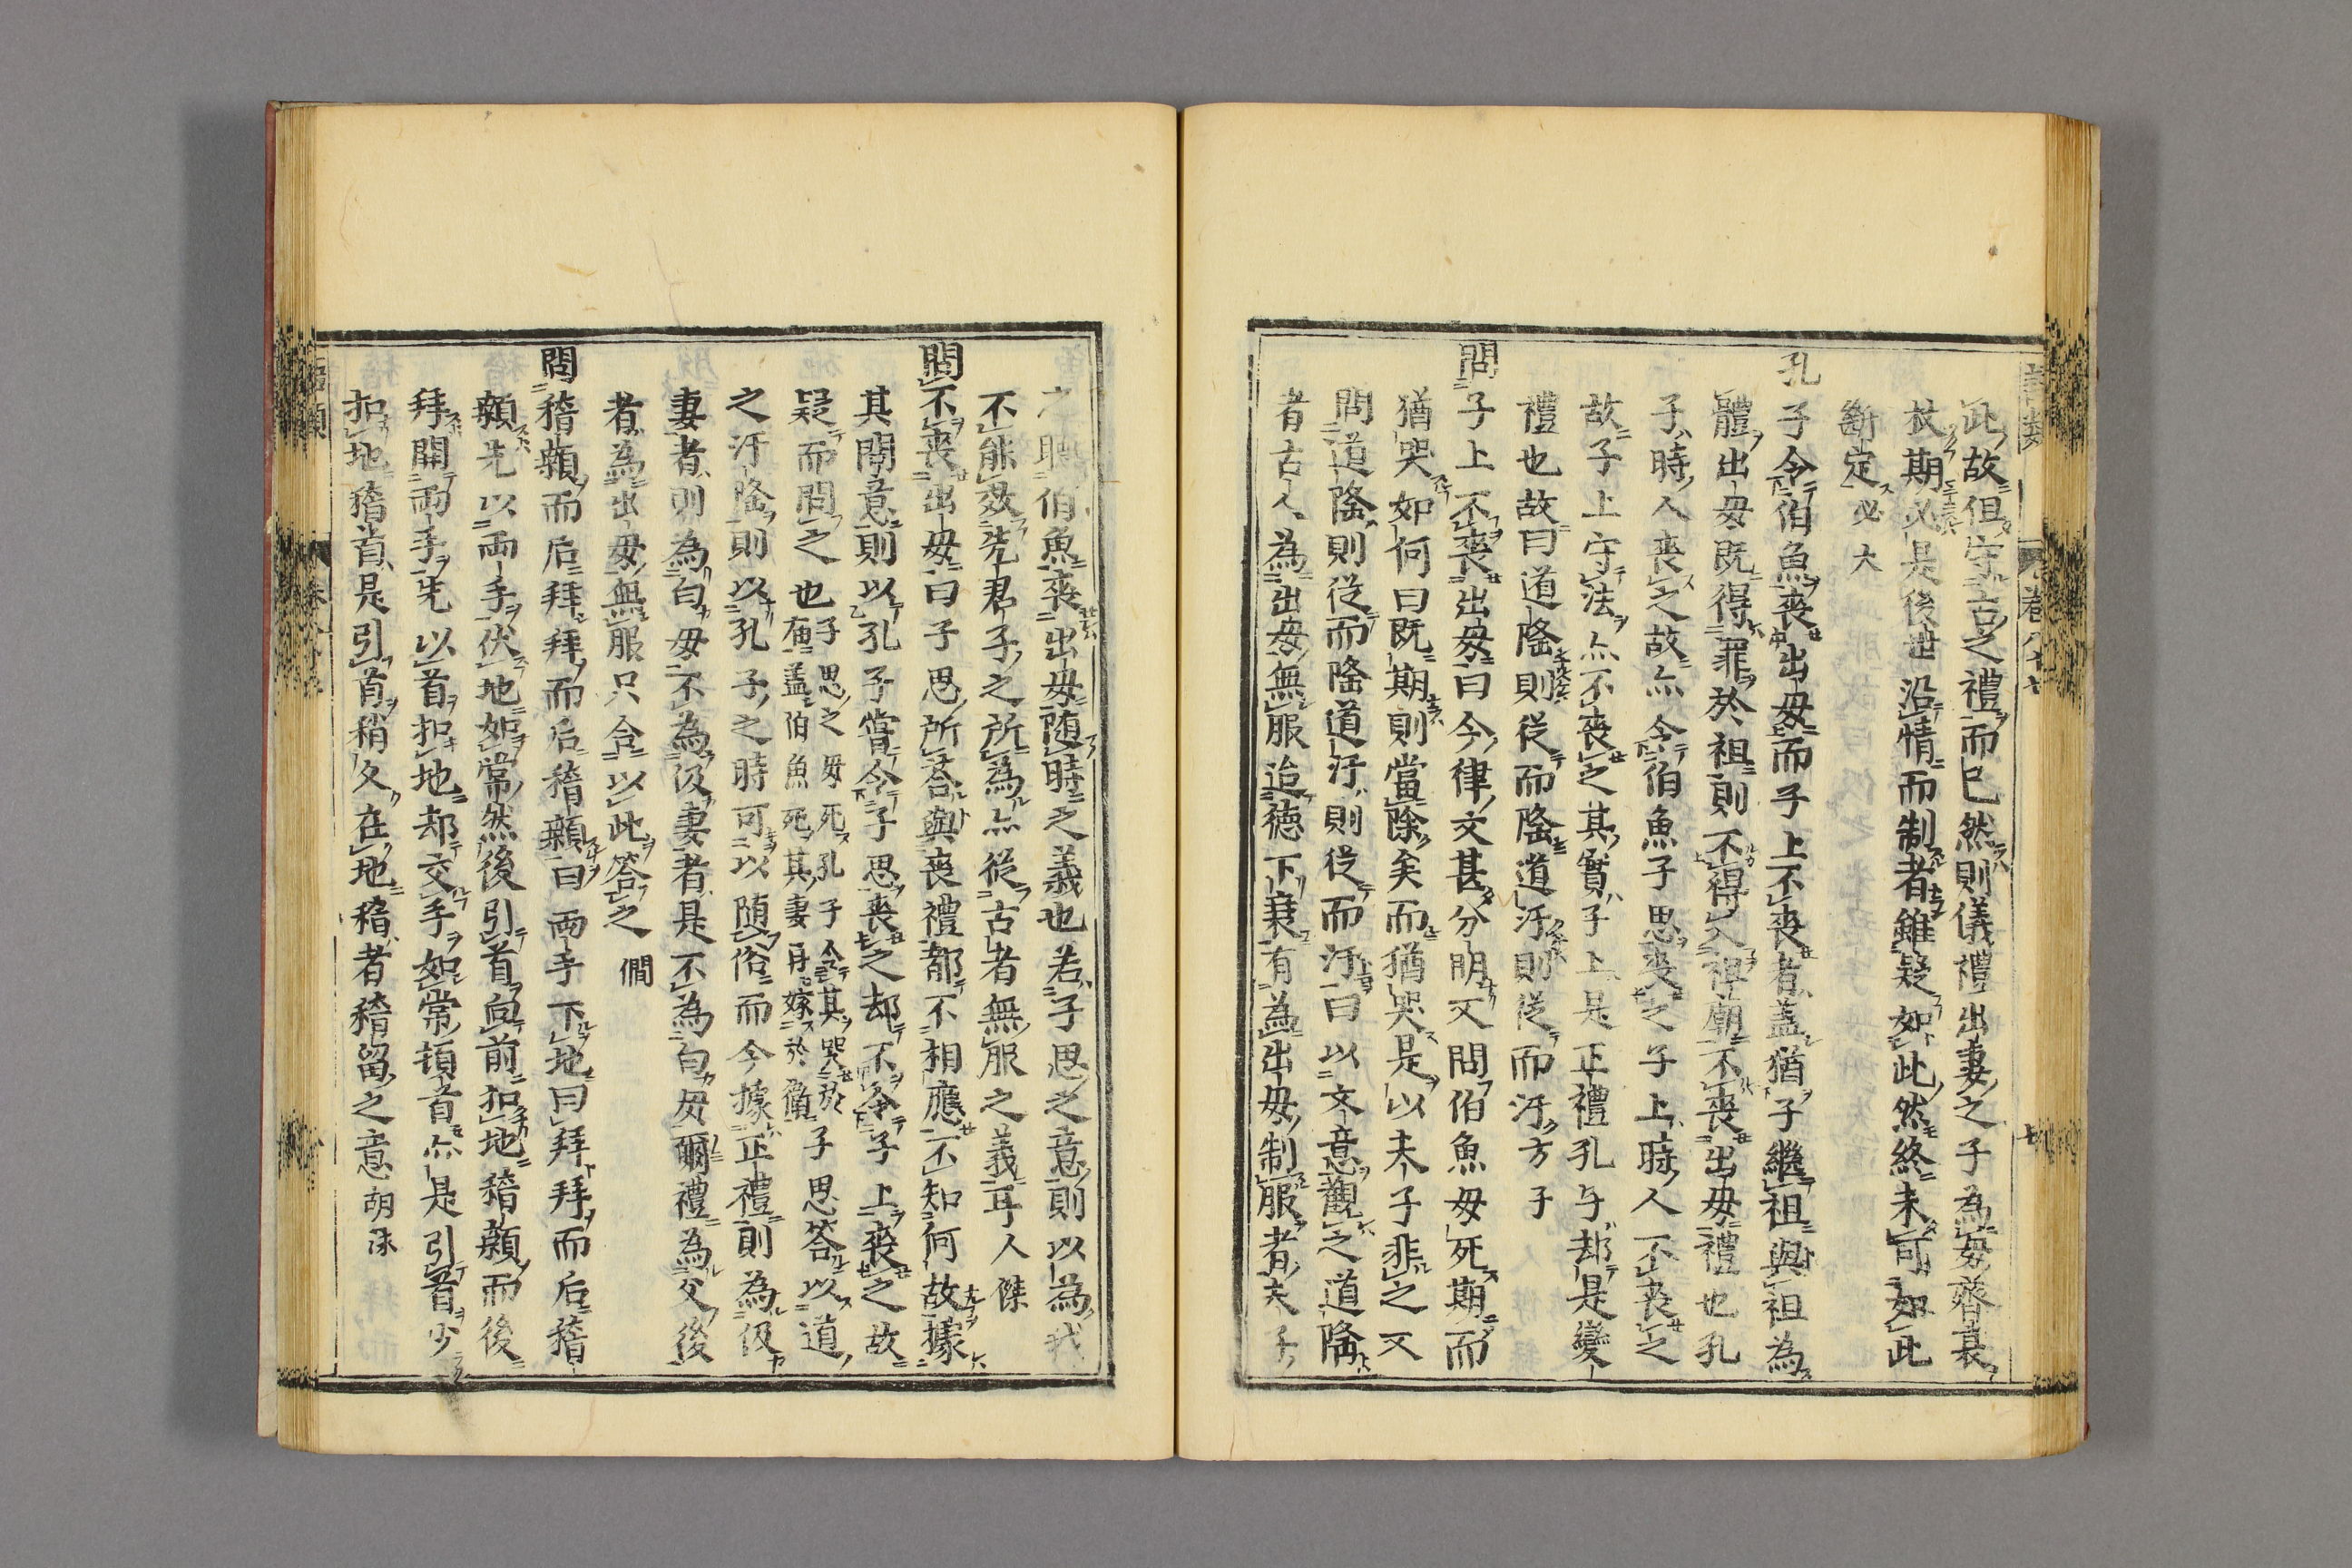 此故但守古之禮而已然則儀禮出妻之子為母齊衰
杖期必是後世沿情而制者雖疑如此然終未可如此
斷定必大
孔子令伯魚喪出母而子上不喪者盖猶子繼祖與祖為
體出母既得罪於祖則不得入祖廟不喪出母禮也孔
子時人喪之故亦令伯魚子思喪之子上時人不喪之
故子上守法亦不喪之其實子上是正禮孔子却是變
禮也故曰道隆則從而隆道汙則從而汙方子
問子上不喪出母曰今律文甚分明又問伯魚母死期而
猶哭如何曰既期則當除矣而猶哭是以夫子非之又
問道隆則從而隆道汙則從而汙曰以文意觀之道隆
者古人為出母無服迨德下衰有為出母制服者夫子
之聽伯魚喪出母随時之義也若子思之意則以為我
不能效先君子之所為亦從古者無服之義耳人傑
問不喪出母曰子思所荅與喪禮都不相應不知何故據
其問意則以孔子嘗令子思喪之却不令子上喪之故
疑而問之也子思之母死孔子令其哭於
庿盖伯魚死其妻再嫁於衛子思荅以道
之汙隆則以孔子之時可以随俗而今據正禮則為伋
妻者則為白母不為伋妻者是不為白母爾禮為父後
者為出母無服只合以此答之 僩
問稽顙而后拜拜而后稽顙曰兩手下地曰拜拜而后稽
顙先以兩手伏地如常然後引首向前扣地稽顙而後
拜開兩手先以首扣地却交手如常頓首亦是引首少
扣地稽首是引首稍久在地稽者稽留之意胡泳
語類
卷八十七
七